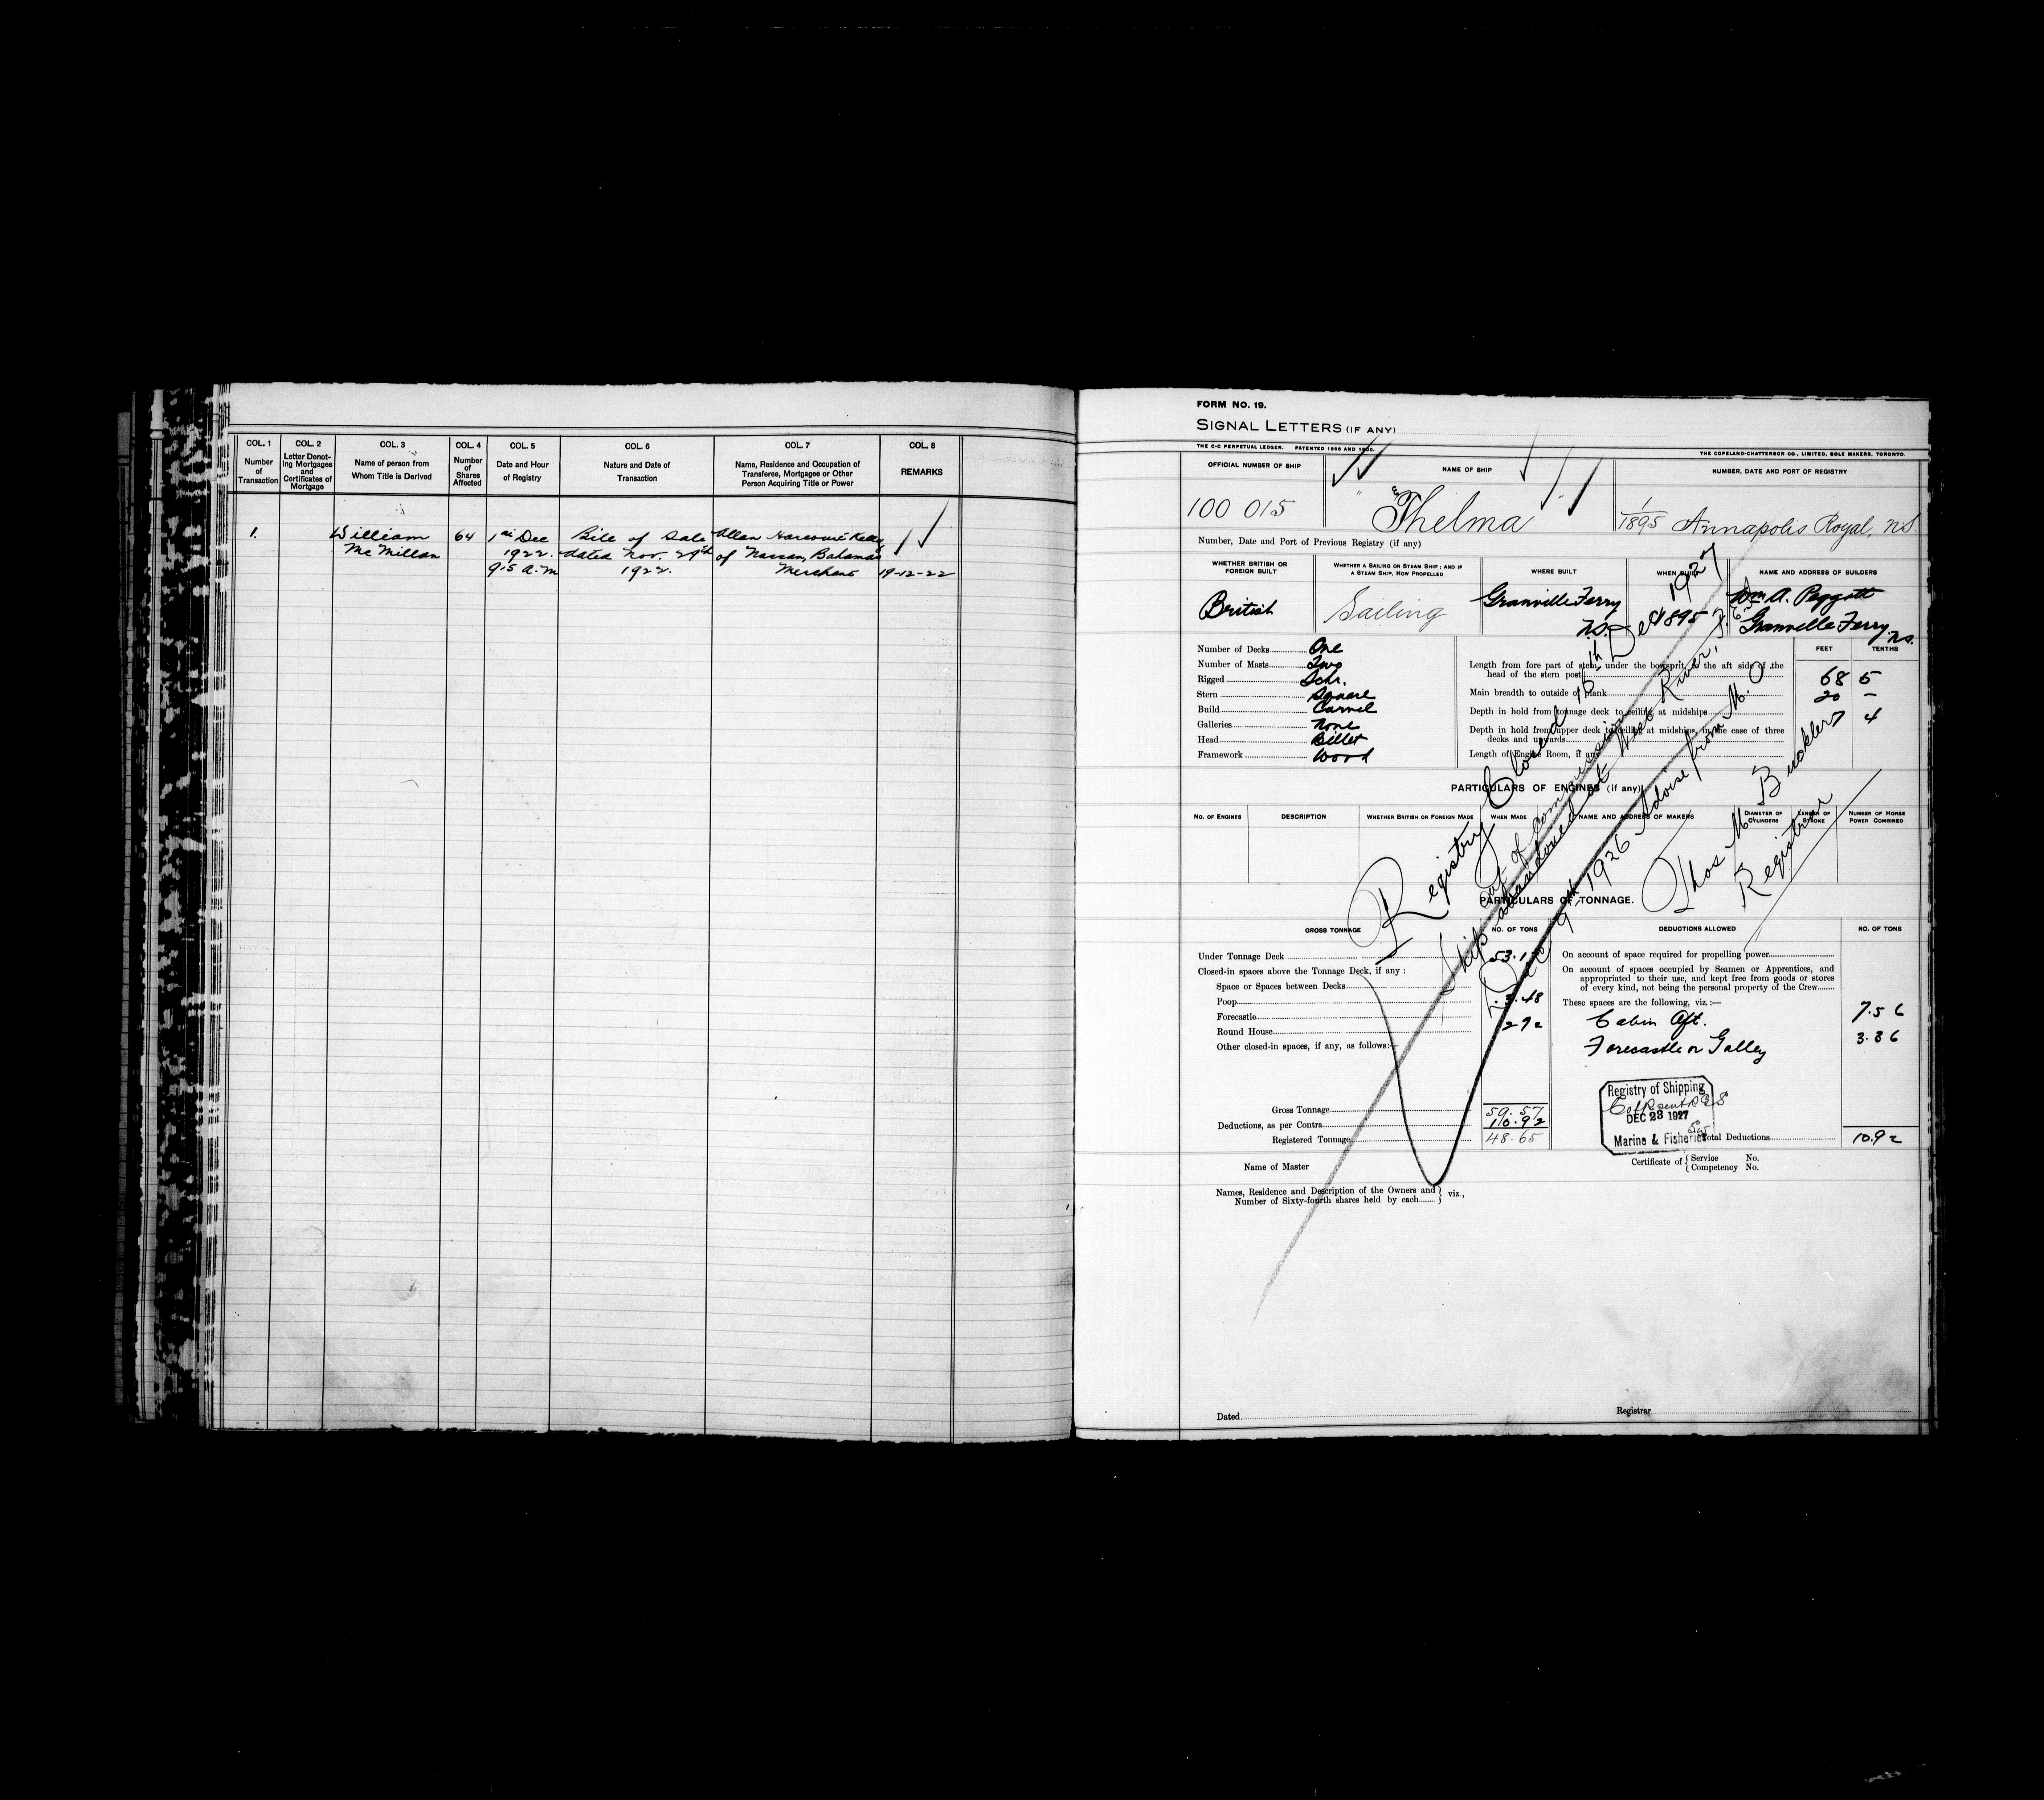 COL. 1
Number
of
Transaction
COL. 2
Letter Denot-
ing Mortgages
and
Certificates of
Mortgage
COL. 3
Name of person from
Whom Title is Derived
COL. 4
Number
of
Shares
Affected
COL. 5
Date and Hour
of Registry
COL. 6
Nature and Date of
Transaction
COL. 7
Name, Residence and Occupation of
Transferee, Mortgagee or Other
Person Acquiring Title or Power
COL. 8
REMARKS
1.
William
McMillan
64
1st Dec
1922.
9.15 A.M
Bill of Sale
dated Nov. 29th
1922.
Allan Harcourt Kelly
of Nassau, Bahamas
Merchant
19-12-22
FORM NO. 19.
SIGNAL LETTERS (IF ANY)
THE C-C PERPETUAL LEDGER. PATENTED 1896 AND 1900.
THE COPELAND-CHATTERSON CO., LIMITED, SOLE MAKERS, TORONTO.
OFFICIAL NUMBER OF SHIP
NAME OF SHIP
NUMBER, DATE AND PORT OF REGISTRY
100 015
"Thelma"
1/1895 Annapolis Royal, N.S.
Number, Date and Port of Previous Registry (if any)
WHETHER BRITISH OR
FOREIGN BUILT
WHETHER A SAILING OR STEAM SHIP; AND IF
A STEAM SHIP, HOW PROPELLED
WHERE BUILT
WHEN BUILT
NAME AND ADDRESS OF BUILDERS
British
Sailing
Granville Ferry
N.S.
1895
Wm A. Piggott
Granville Ferry
N.S.
Number of Decks One
Number of Masts Two
Rigged Schr.
Stern Square
Build Carvel
Galleries None
Head Billet
Framework Wood
FEET TENTHS
Length from fore part of stem, under the bowsprit, to the aft side of the
head of the stern post 68 5
Main breadth to outside of plank 20 –
Depth in hold from tonnage deck to ceiling at midships 7 4
Depth in hold from upper deck to ceiling at midships, in the case of three
decks and upwards
Length of Engine Room, if any
PARTICULARS OF ENGINES (if any)
NO. OF ENGINES
DESCRIPTION
WHETHER BRITISH OR FOREIGN MADE
WHEN MADE
NAME AND ADDRESS OF MAKERS
DIAMETER OF
CYLINDERS
LENGTH OF
STROKE
NUMBER OF HORSE
POWER COMBINED
Registry Closed 16th Dec 1927
Ship out of commission
abandoned at River,
Dec 9th 1926 Advise from M. O
Thos M Buckler
Registrar
PARTICULARS OF TONNAGE.
GROSS TONNAGE
NO. OF TONS
DEDUCTIONS ALLOWED
NO. OF TONS
Under Tonnage Deck 53.17
Closed-in spaces above the Tonnage Deck, if any :
Space or Spaces between Decks
Poop 3.48
Forecastle
Round House 2.92
Other closed-in spaces, if any, as follows:—
Gross Tonnage 59.57
Deductions, as per Contra 10.92
Registered Tonnage 48.65
On account of space required for propelling power
On account of spaces occupied by Seamen or Apprentices, and
appropriated to their use, and kept free from goods or stores
of every kind, not being the personal property of the Crew
These spaces are the following, viz.:—
Cabin Aft. 7.56
Forecastle or Galley 3.36
Registry of Shipping
DEC 23 1927
Marine & Fisheries
Total Deductions 10.92
Name of Master
Certificate of { Service No.
Competency No.
Names, Residence and Description of the Owners and
Number of Sixty-fourth shares held by each } viz.,
Dated
Registrar